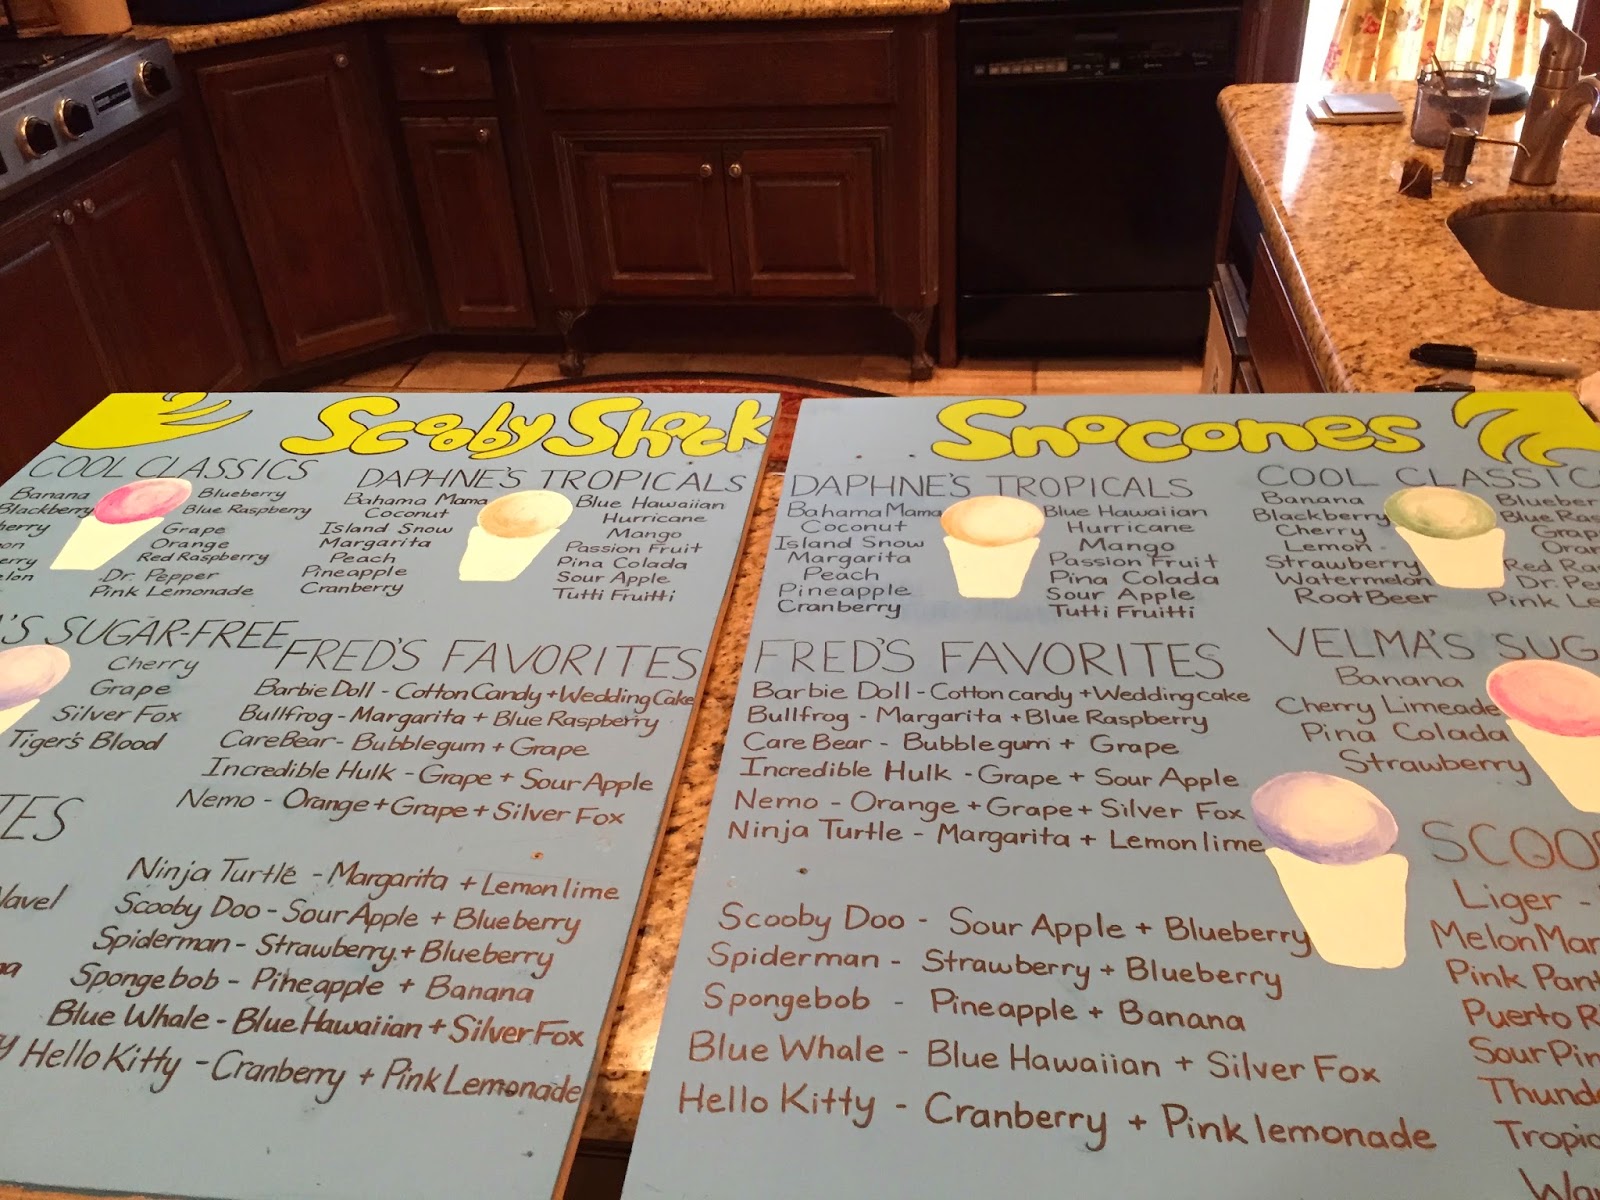 Scooby Shack
COOL CLASSICS
Banana
Blackberry
Blueberry
Blue Raspberry
Grape
Orange
Red Raspberry
Dr. Pepper
Pink Lemonade
DAPHNE'S TROPICALS
Bahama Mama
Coconut
Island Snow
Margarita
Peach
Pineapple
Cranberry
Blue Hawaiian
Hurricane
Mango
Passion Fruit
Pina Colada
Sour Apple
Tutti Fruitti
SUGAR-FREE
Cherry
Grape
Silver Fox
Tiger's Blood
FRED'S FAVORITES
Barbie Doll - Cotton Candy + Wedding Cake
Bullfrog - Margarita + Blue Raspberry
CareBear - Bubblegum + Grape
Incredible Hulk - Grape + Sour Apple
Nemo - Orange + Grape + Silver Fox
Ninja Turtle - Margarita + Lemonlime
Scooby Doo - Sour Apple + Blueberry
Spiderman - Strawberry + Blueberry
Spongebob - Pineapple + Banana
Blue Whale - Blue Hawaiian + Silver Fox
Hello Kitty - Cranberry + Pink Lemonade
Snocones
DAPHNE'S TROPICALS
Bahama Mama
Coconut
Island Snow
Margarita
Peach
Pineapple
Cranberry
Blue Hawaiian
Hurricane
Mango
Passion Fruit
Pina Colada
Sour Apple
Tutti Fruitti
COOL CLASSIC
Banana
Blackberry
Cherry
Lemon
Strawberry
Watermelon
RootBeer
Blueber
Blue Ras
Grap
Oran
Red Ra
Dr. Pe
Pink Le
FRED'S FAVORITES
Barbie Doll - Cotton candy + Wedding cake
Bullfrog - Margarita + Blue Raspberry
Care Bear - Bubblegum + Grape
Incredible Hulk - Grape + Sour Apple
Nemo - Orange + Grape + Silver Fox
Ninja Turtle - Margarita + Lemonlime
Scooby Doo - Sour Apple + Blueberry
Spiderman - Strawberry + Blueberry
Spongebob - Pineapple + Banana
Blue Whale - Blue Hawaiian + Silver Fox
Hello Kitty - Cranberry + Pink lemonade
VELMA'S SUG
Banana
Cherry Limeade
Pina Colada
Strawberry
SCOO
Liger -
Melon Mar
Pink Pant
Puerto R
Sour Pin
Thund
Tropic
Wa